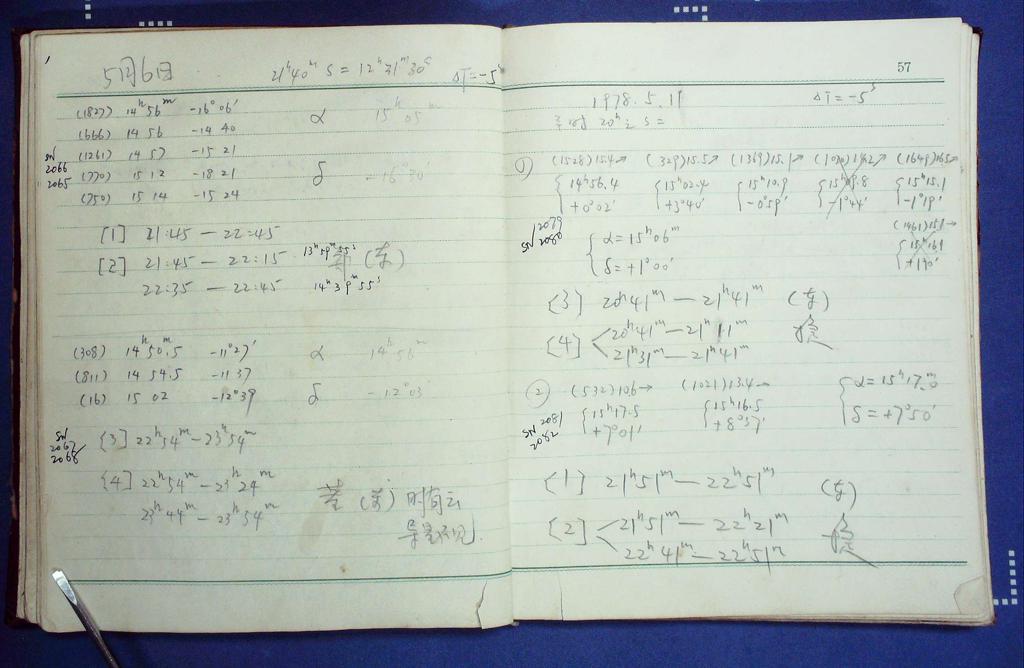 5月6日 21ʰ40ᵐ S = 12ʰ31ᵐ30ˢ ΔT=-5ˢ
(1827) 14ʰ56ᵐ -16°06′
(666) 14 56 -14 40
α 15ʰ05ᵐ
SN 2066 2065
(1261) 14 57 -15 21
(770) 15 12 -18 21
δ -16°30′
(750) 15 14 -15 24
[1] 21:45 — 22:45
[2] 21:45 — 22:15 13ʰ59ᵐ55ˢ (东)
22:35 — 22:45 14ʰ39ᵐ55ˢ
(308) 14ʰ50.ᵐ5 -11°27′
α 14ʰ56ᵐ
(811) 14 54.5 -11 37
(16) 15 02 -12°39
δ -12°03
SN 2067 2068
[3] 22ʰ54ᵐ — 23ʰ54ᵐ
[4] 22ʰ54ᵐ — 23ʰ24ᵐ
23ʰ44ᵐ — 23ʰ54ᵐ
时有云
导星不见.
57
1978.5.11 ΔT=-5ˢ
20ʰ S =
① (1528)15.4→ (329)15.5→ (1369)15.1→ (1649)16.5→
14ʰ56.4 15ʰ02.4 15ʰ10.9 15ʰ09.8 15ʰ15.1
+0°02′ +3°40′ -0°59′ -1°44′ -1°19′
SN 2079 2080
α=15ʰ06ᵐ
δ=+1°00′
(1461)15.1→
15ʰ16.1
[3] 20ʰ41ᵐ — 21ʰ41ᵐ (东)
[4] 20ʰ41ᵐ — 21ʰ11ᵐ
21ʰ31ᵐ — 21ʰ41ᵐ
② (532)10.6→ (1021)13.4→ α=15ʰ17.ᵐ0
15ʰ17.5 15ʰ16.5 δ=+7°50′
+7°01′ +8°37′
SN 2081 2082
[1] 21ʰ51ᵐ — 22ʰ51ᵐ (东)
[2] 21ʰ51ᵐ — 22ʰ21ᵐ
22ʰ41ᵐ — 22ʰ51ᵐ